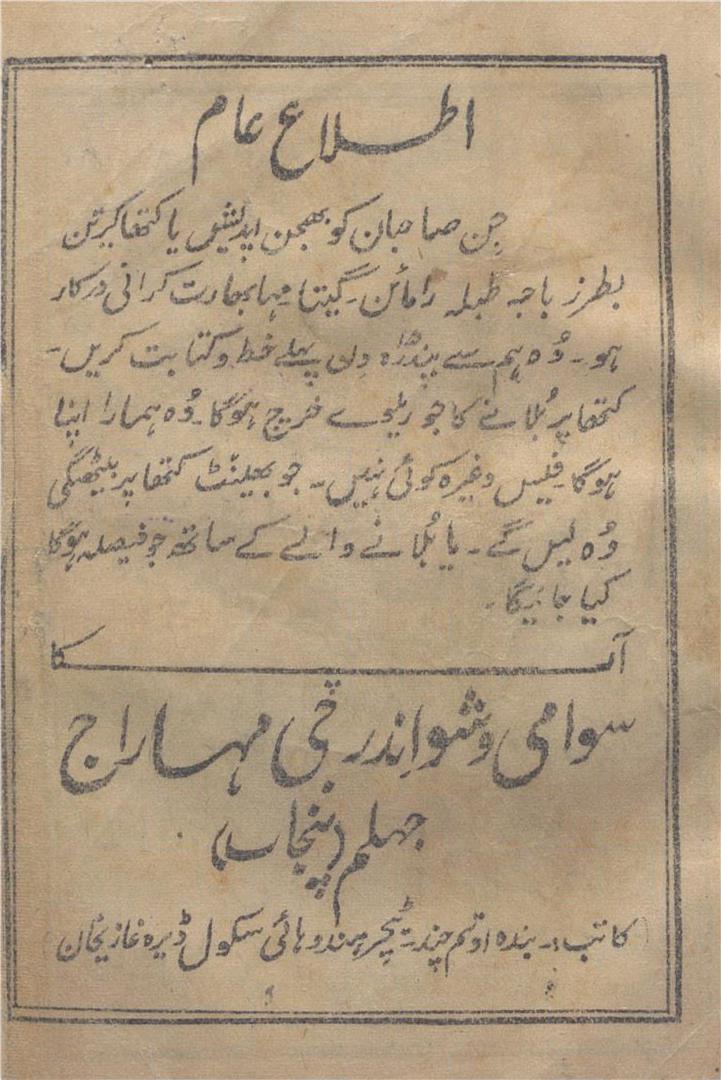 اطلاع عام
جن صاحبان کو بھجن اپدیش یا کتھا کیرتن
بطرز باجہ طبلہ رامائن۔ گیتا مہابھارت کرانی درکار
ہو۔ وُہ ہم سے پندرہ دِن پہلے خط و کتابت کریں۔
کتھا پر بُلانے کا جو ریلوے خرچ ہوگا۔ وُہ ہمارا اپنا
ہوگا۔ فیس وغیرہ کوئی نہیں۔ جو بھینٹ کتھا پر بیٹھیگی
وُہ لیں گے۔ یا بُلانے والے کے ساتھ جو فیصلہ ہوگا
کیا جائیگا۔
آپ کا
سوامی وشواِندر جی مہاراج
جہلم (پنجاب)
کاتب:۔ بندہ اوتم چند ٹیچر ہندو ہائی سکول ڈیرہ غازیخان